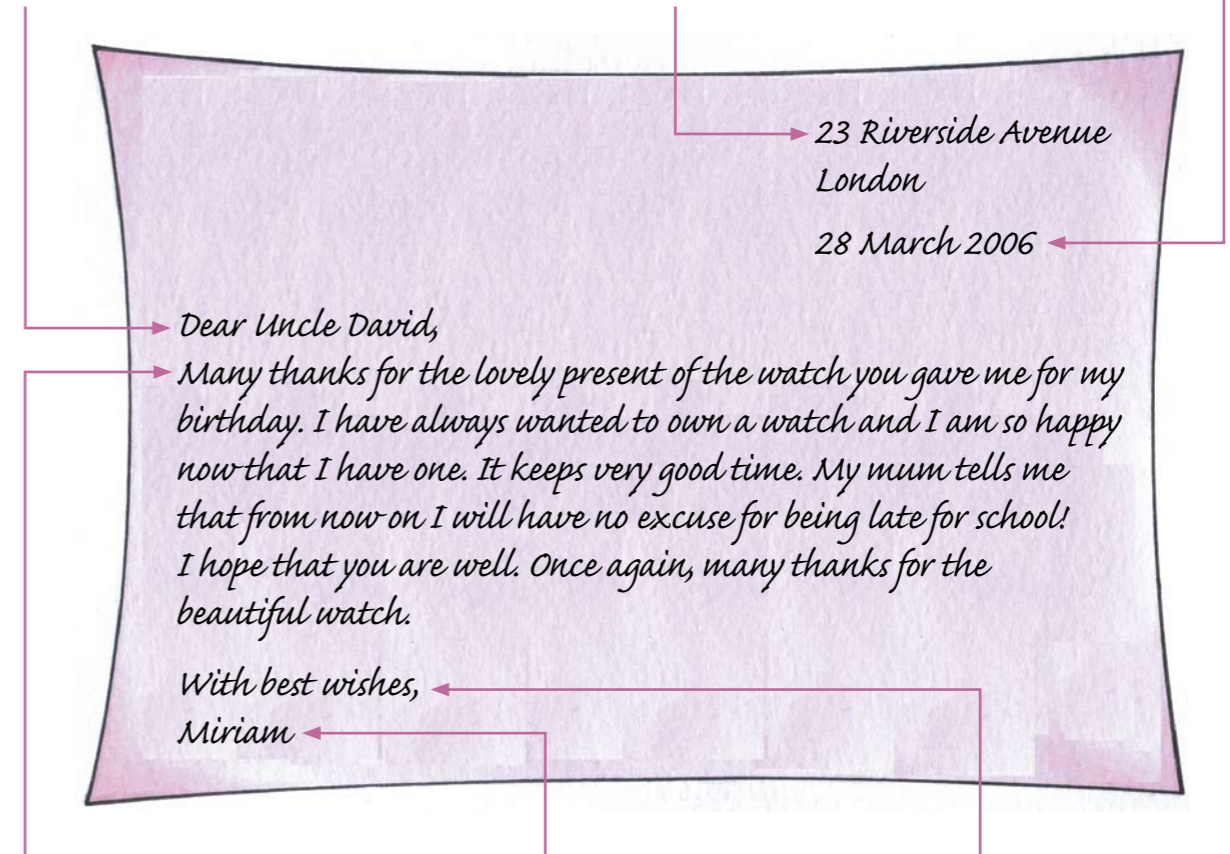 23 Riverside Avenue
London
28 March 2006
Dear Uncle David,
Many thanks for the lovely present of the watch you gave me for my
birthday. I have always wanted to own a watch and I am so happy
now that I have one. It keeps very good time. My mum tells me
that from now on I will have no excuse for being late for school!
I hope that you are well. Once again, many thanks for the
beautiful watch.
With best wishes,
Miriam